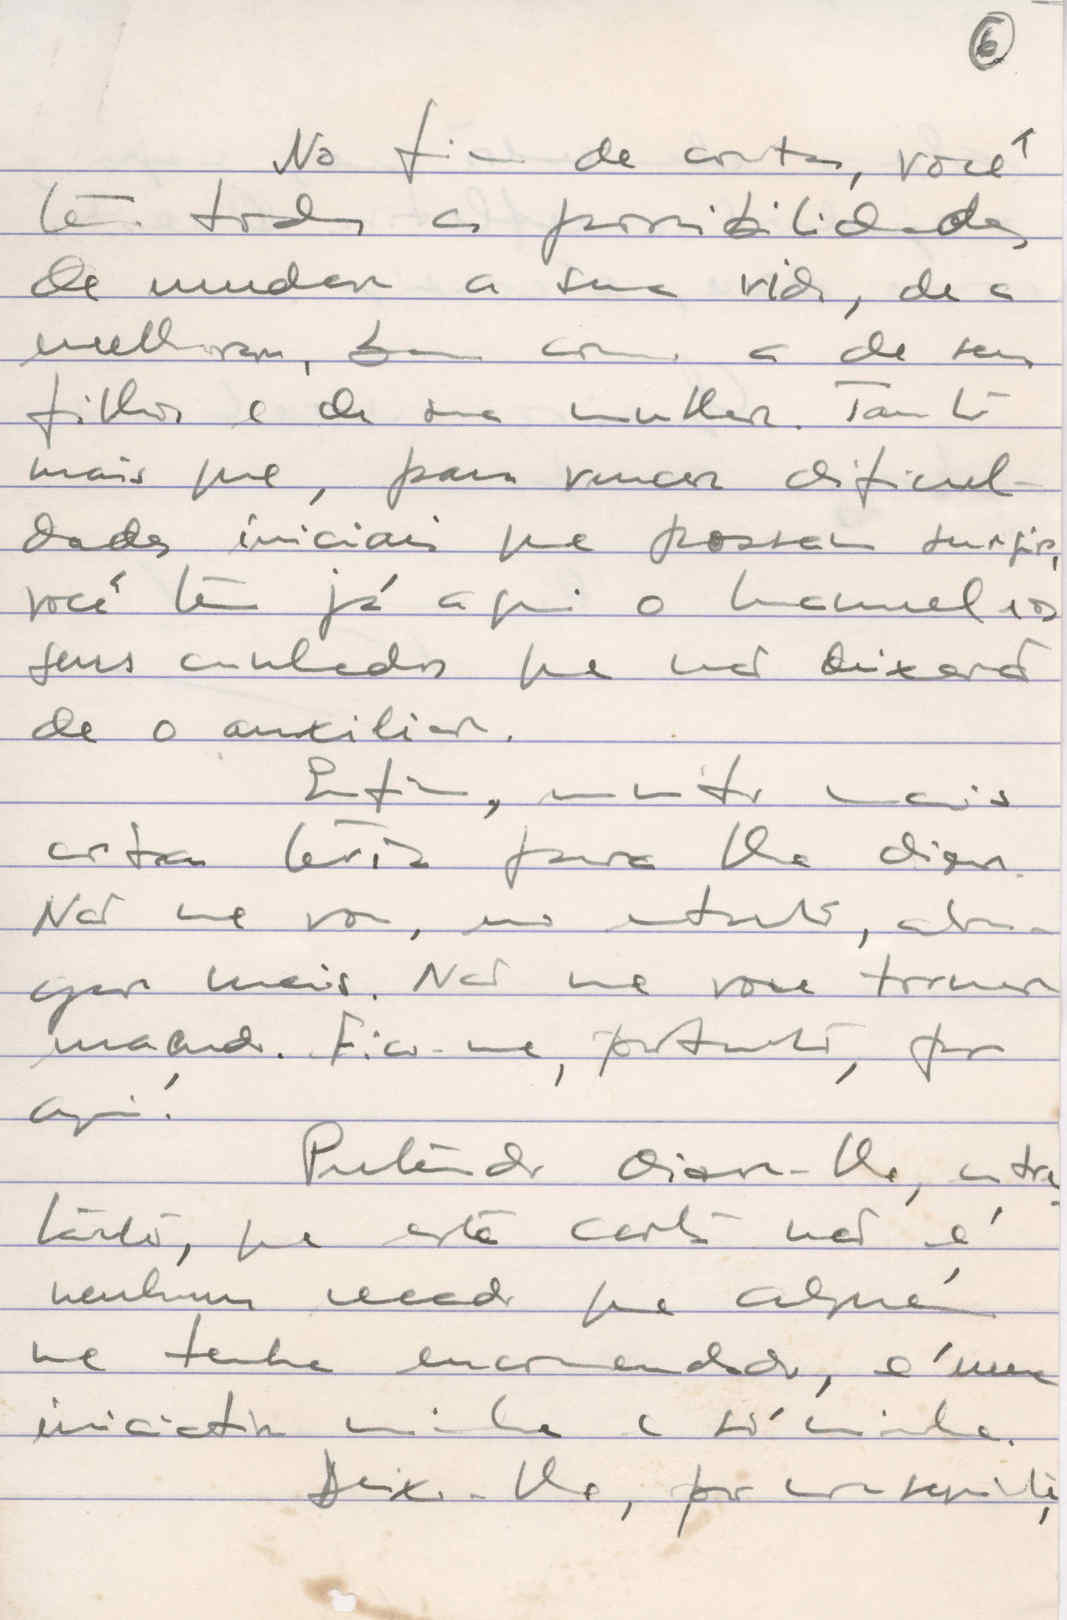 6
No fim de contas, você
tem todas as possibilidades
de mudar a sua vida, de a
melhorar, bem como a de seus
filhos e de sua mulher. Tanto
mais que, para vencer dificul-
dades iniciais que possam surgir,
você tem já aqui o Manuel e os
seus cunhados que não deixarão
de o auxiliar.
Enfim, muito mais
coisas teria para lhe dizer.
Não me vou, no entanto, alon-
gar mais. Não me vou tornar
maçudo. Fico-me, portanto, por
aqui!
Pretendo dizer-lhe, entre-
tanto, que esta carta não é
nenhum recado que alguém
me tenha encomendado, é uma
iniciativa minha e só minha.
Deixo-lhe, por conseguinte,